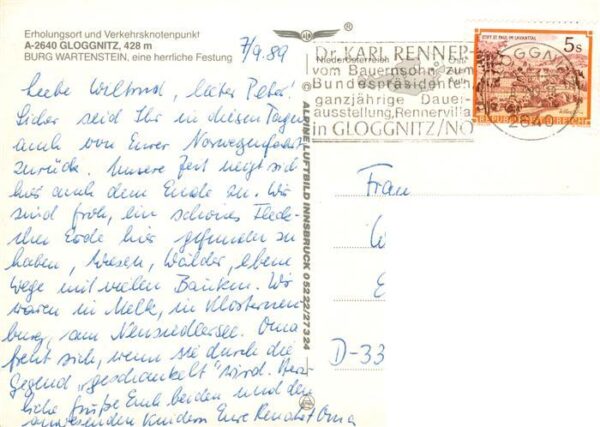 Erholungsort und Verkehrsknotenpunkt
A-2640 GLOGGNITZ, 428 m
BURG WARTENSTEIN, eine herrliche Festung
7/9.89
Liebe Waltraud, lieber Peter!
Sicher seid Ihr in diesen Tagen
auch von Eurer Norwegenfahrt
zurück. Unsere Zeit neigt sich
hier auch dem Ende zu. Wir
sind froh, ein schönes Fleck-
chen Erde hier gefunden zu
haben, Wiesen, Wälder, ebene
Wege mit vielen Bänken. Wir
waren in Melk, in Klosterneu-
burg, am Neusiedlersee. Oma
freut sich, wenn sie durch die
Gegend "geschaukelt" wird. Herz-
liche Grüße Euch beiden und den
anwesenden Kindern Eure Oma
Niederösterreich
Dr. KARL RENNER-
vom Bauernsohn zum
Bundespräsidenten
ganzjährige Dauer-
ausstellung, Rennervilla
in GLOGGNITZ/NÖ
STIFT ST. PAUL IM LAVANTTAL
5s
REPUBLIK ÖSTERREICH
GLOGGNITZ
2640
ALPINE LUFTBILD INNSBRUCK 05222/27324
Frau
D-33